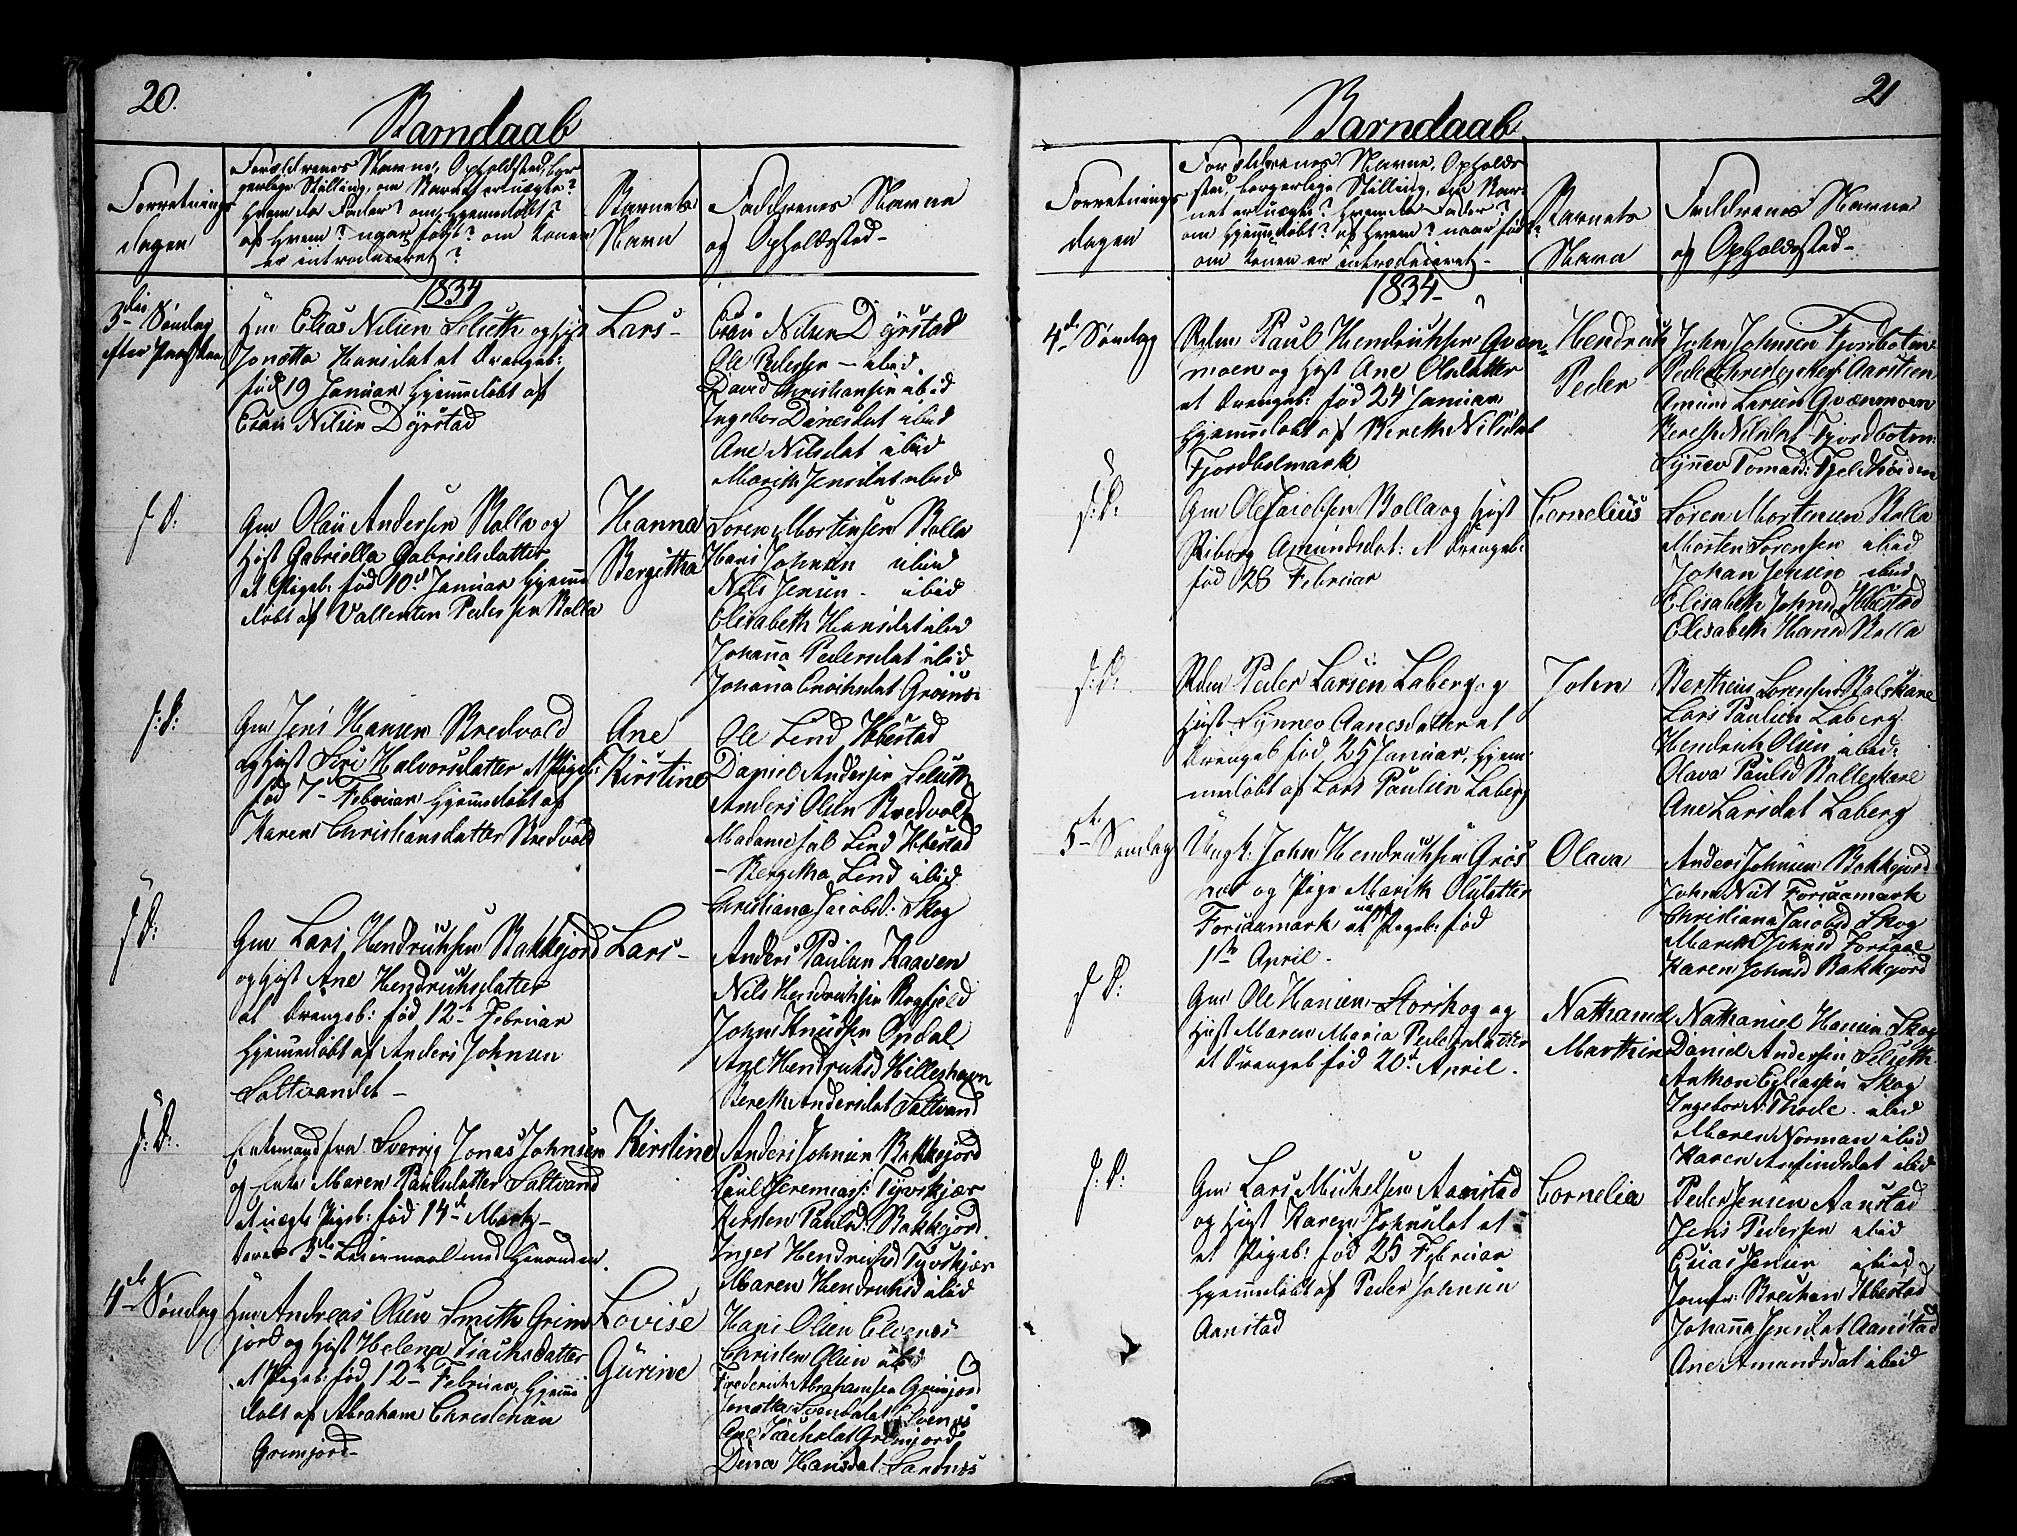 20.
Barndaab
Forretnings
dagen
Forældrenes Navne, Opholdsted, bor
gerlige Stilling, om Barnet er uægte?
hvem da Fader? om hjemmedøbt?
af hvem? naar født? om konen
er introduceret?
Barnets
Navn
Faddrenes Navne
og Opholdssted
1834
3die Søndag
efter Paaske
Hm Elias Nilsen Selseth og Hust
Jonetta Hansdat et Drengeb:
fød 19 Januar hjemmedøbt af
Esau Nilsen Dyrstad
Lars
Esau Nilsen Dyrstad
Ole Pedersen ibid
David Christiansen ibid
Ingebor Danielsdat ibid
Ane Nilsdat ibid
Marith Jensdat ibid
f: D:
Gm Olaii Andersen Rolla og
Hust Gabriella Gabrielsdatter
et Pigeb: fød 10d Januar hjemme
døbt af Vallentin Pedersen Rolla
Hanna
Bergitha
Søren Mortensen Rolla
Hans Johnsen ibid
Nils Jensen ibid
Elisabeth Hansdat ibid
Johanna Pedersdat ibid
Johana Erichsdat Grøsnes
f: D:
Gm Jens Hansen Bredvold
og Hust Siri Halvorsdatter et Pigeb:
fød 7d Februar hjemmedøbt af
Karen Christiansdatter Bredvold
Ane
Kirstine
Ole Lind Ibbestad
Daniel Andersen Selseth
Anders Olsen Bredvold
Madame Sal Lind Ibbestad
Bergitha Lind ibid
Christiana Jacobsd: Skog
f: D:
Gm Lars Hendrichsen Bakkejord
og Hust Ane Hendrichsdatter
et Drengeb: fød 12t Februar
hjemmedøbt af Anders Johnsen
Saltvandet
Lars
Anders Paulsen Raaven
Nils Hendrichsen Bogfjeld
John Knudsen Opdal
Ane Hendrichsd Hilleshavn
Bereth Andersdat Saltvand
f: D:
Enkemand fra Sverrig Jonas Johnsen
og Enke Maren Paulsdatter Saltvand
et uægte Pigeb: fød 14de Marts
deres 3die Leiermaal med hinanden.
Kirstine
Anders Johnsen Bakkejord
Paul Jeremiass: Tyvskjær
Kirsten Paulsd: Bakkejord
Inger Hendrichsd Tyvskjær
Maren Hendrichsd ibid
4de Søndag
Hm Andreas Olsen Smith Grim
jord og Hust Helena Isachsdatter
et Pigeb: fød 12t Februar, hjemme
døbt af Abraham Christensen
Grimjord
Lovise
Gurine
Hans Olsen Elvenes
Christen Olsen ibid
Frederich Abrahamsen Grimjord
Jonetta Svendsdat Elvenes
Ane Isachsdat Grimjord
Dina Hansdat Sandnes
21
Barndaab
Forretnings
dagen
Forældrenes Navne, Opholds
sted, borgerlige Stilling, om Bar
net er uægte? hvem da Fader?
om hjemmedøbt? af hvem? naar født?
om konen er introduceret
Barnets
Navn
Faddrenes Navne
og Opholdssted
1834
4de Søndag
Rdm Paul Hendrichsen Qvæn
moen og Hust Ane Olsdatter
et Drengeb: fød 24 Januar
hjemmedøbt af Bereth Nilsdat
Fjordbotmark
Hendrich
Peder
John Johnsen Fjordbotm
Peder Christophers: Aarsteen
Amund Larsen Qvænmoen
Bereth Nilsdat Fjordbotm:
Synnev Tomasd: Fjeldhøiden
f: D:
Gm Ole Jacobsen Rolla og Hust
Riborg Amundsdat: et Drengeb:
fød 28 Februar
Cornelius
Søren Mortensen Rolla
Morten Sørensen ibid
Johan Jensen ibid
Elisabeth Johnsd Ibbestad
Elisabeth Hansd Rolla
f: D:
Rdm Peder Larsen Laberg og
Hust Synnev Aanesdatter et
Drengeb fød 25 Januar, hjem
medøbt af Lars Paulsen Laberg
John
Bertheus Sørensen Balskare
Lars Paulsen Laberg
Hendrich Olsen ibid:
Olava Paulsd Balleskare
Ane Larsdat Laberg
5te Søndag
Ungk: John Hendrichsen Grøs
næs og Pige Marith Olsdatter
Forsaamark et uægte Pigeb: fød
1ste April
Olava
Anders Johnsen Bakkejord
John Nils Forsaamark
Christiana Jacobsd Skog
Marith Johnsd Forsaae
Karen Johnsd Bakkejord
f: D:
Gm Ole Hansen Storskog og
Hust Maren Maria Pedersdatter
et Drengeb fød 20de April.
Nathanael
Marthin
Nathaniel Hansen Skog
Daniel Andersen Selseth
Anthon Eliassen Skog
Ingebor N: Thode ibid
Maren Norman ibid
Karen Arefindsdat ibid
f: D:
Gm Lars Michelsen Aanstad
og Hust Karen Johnsdat et
et Pigeb: fød 25 Februar
hjemmedøbt af Peder Johnsen
Aanstad
Cornelia
Peder Jensen Aanstad
Jens Pedersen ibid
Esaias Jensen ibid
Jomfr: Brechan Ibbestad
Johanna Jensdat Aanstad
Ane Amundsdat ibid